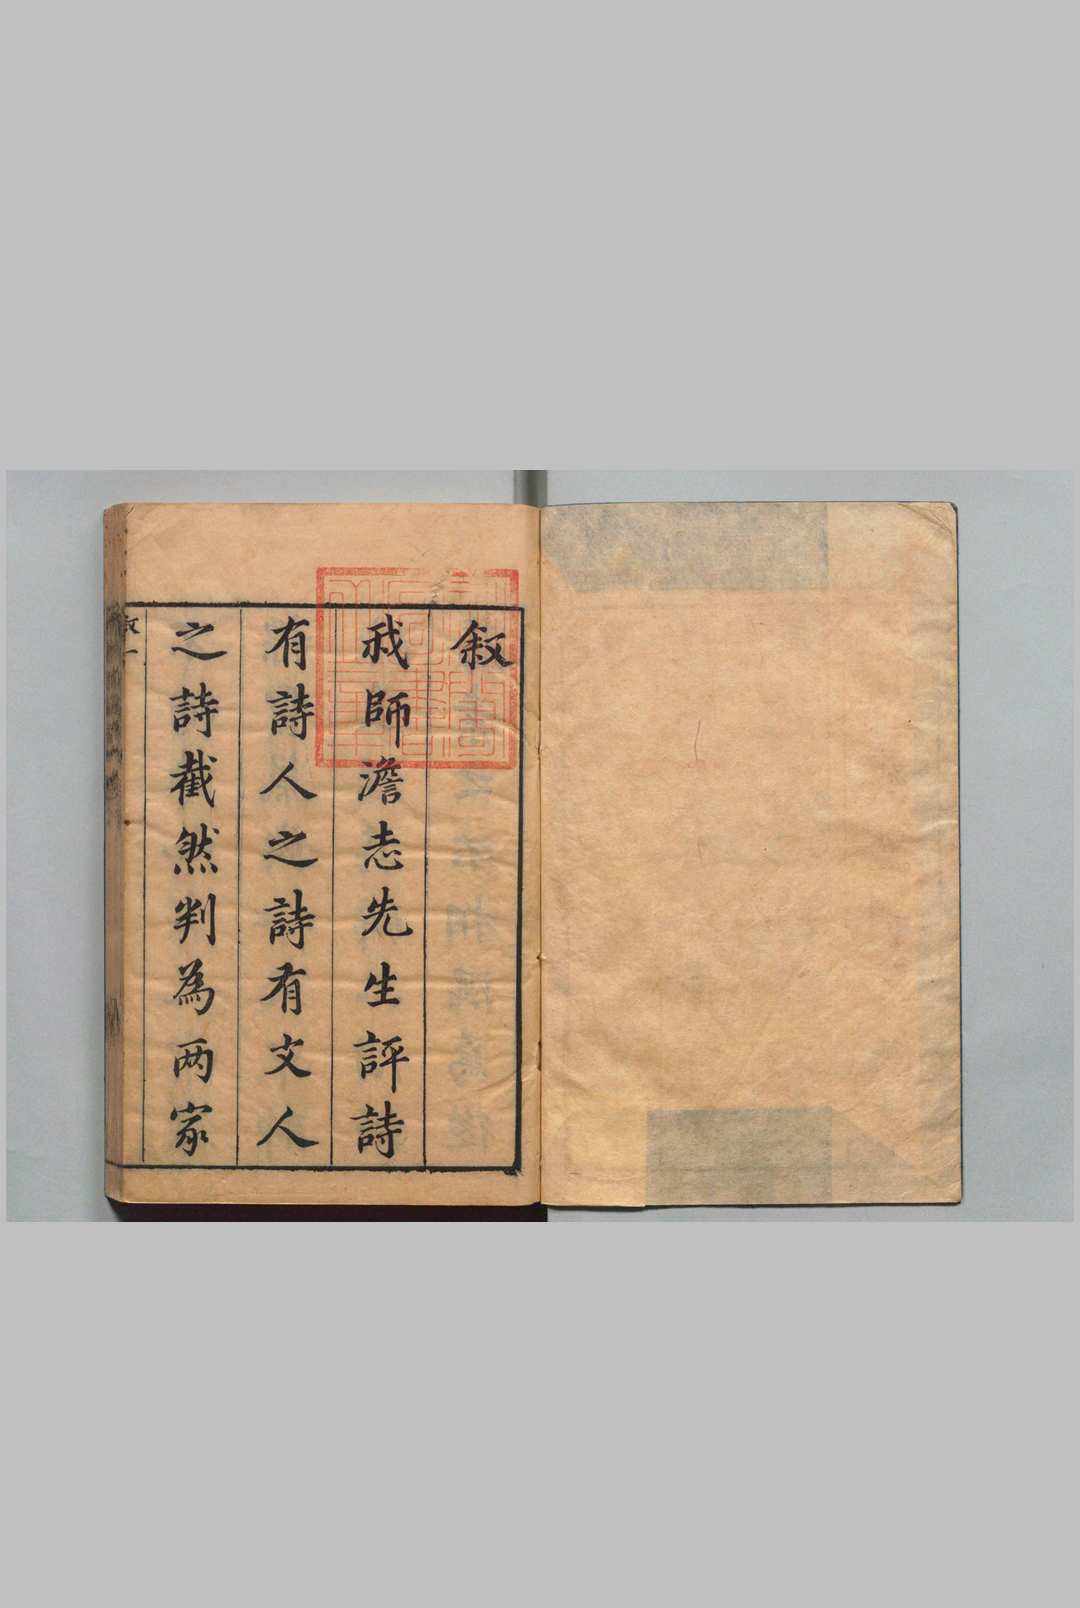 叙
我師澹志先生評詩
有詩人之詩有文人
之詩截然判為两家
叙一